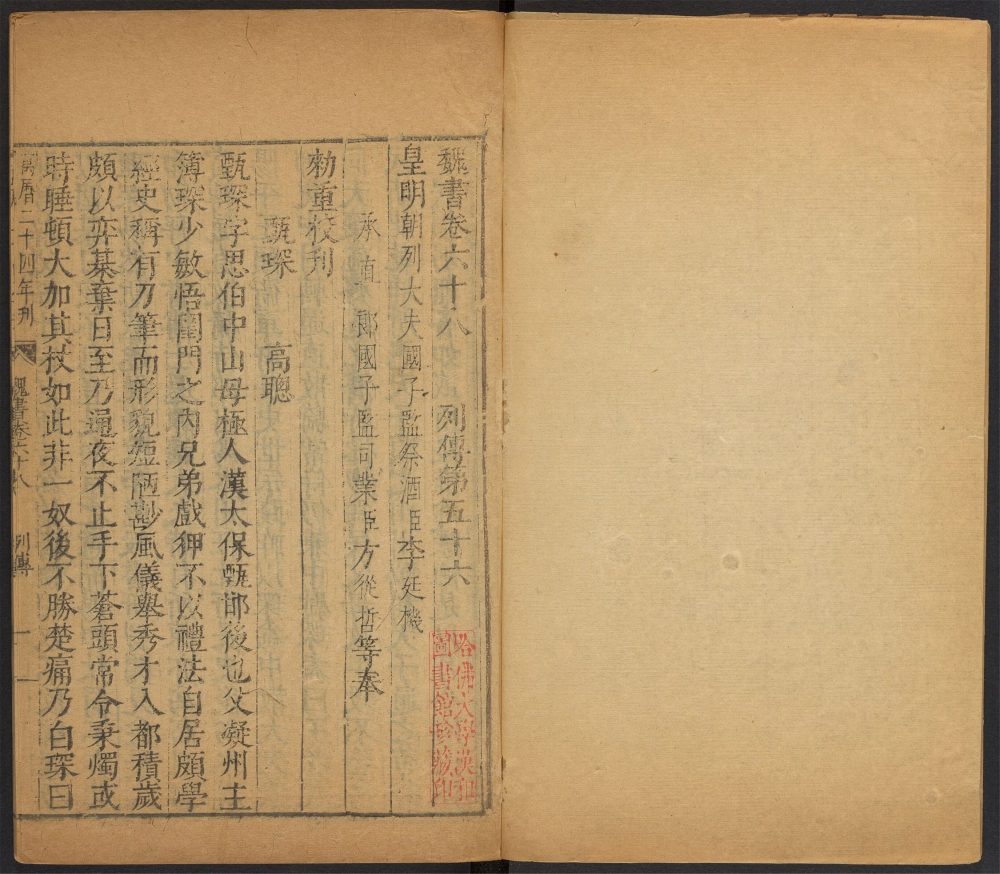 魏書卷六十八 列傳第五十六
皇明朝列大夫國子監祭酒臣李廷機
承直郎國子監司業臣方從哲等奉
勑重校刊
甄琛 高聰
甄琛字思伯中山毋極人漢太保甄邯後也父凝州主
簿琛少敏悟閨門之內兄弟戲狎不以禮法自居頗學
經史稱有刀筆而形貌短陋尠風儀舉秀才入都積歲
頗以弈棊棄日至乃通夜不止手下蒼頭常令秉燭或
時睡頓大加其杖如此非一奴後不勝楚痛乃白琛曰
萬曆二十四年刊 魏書卷六十八 列傳 一
哈佛大學漢和
圖書館珍藏印